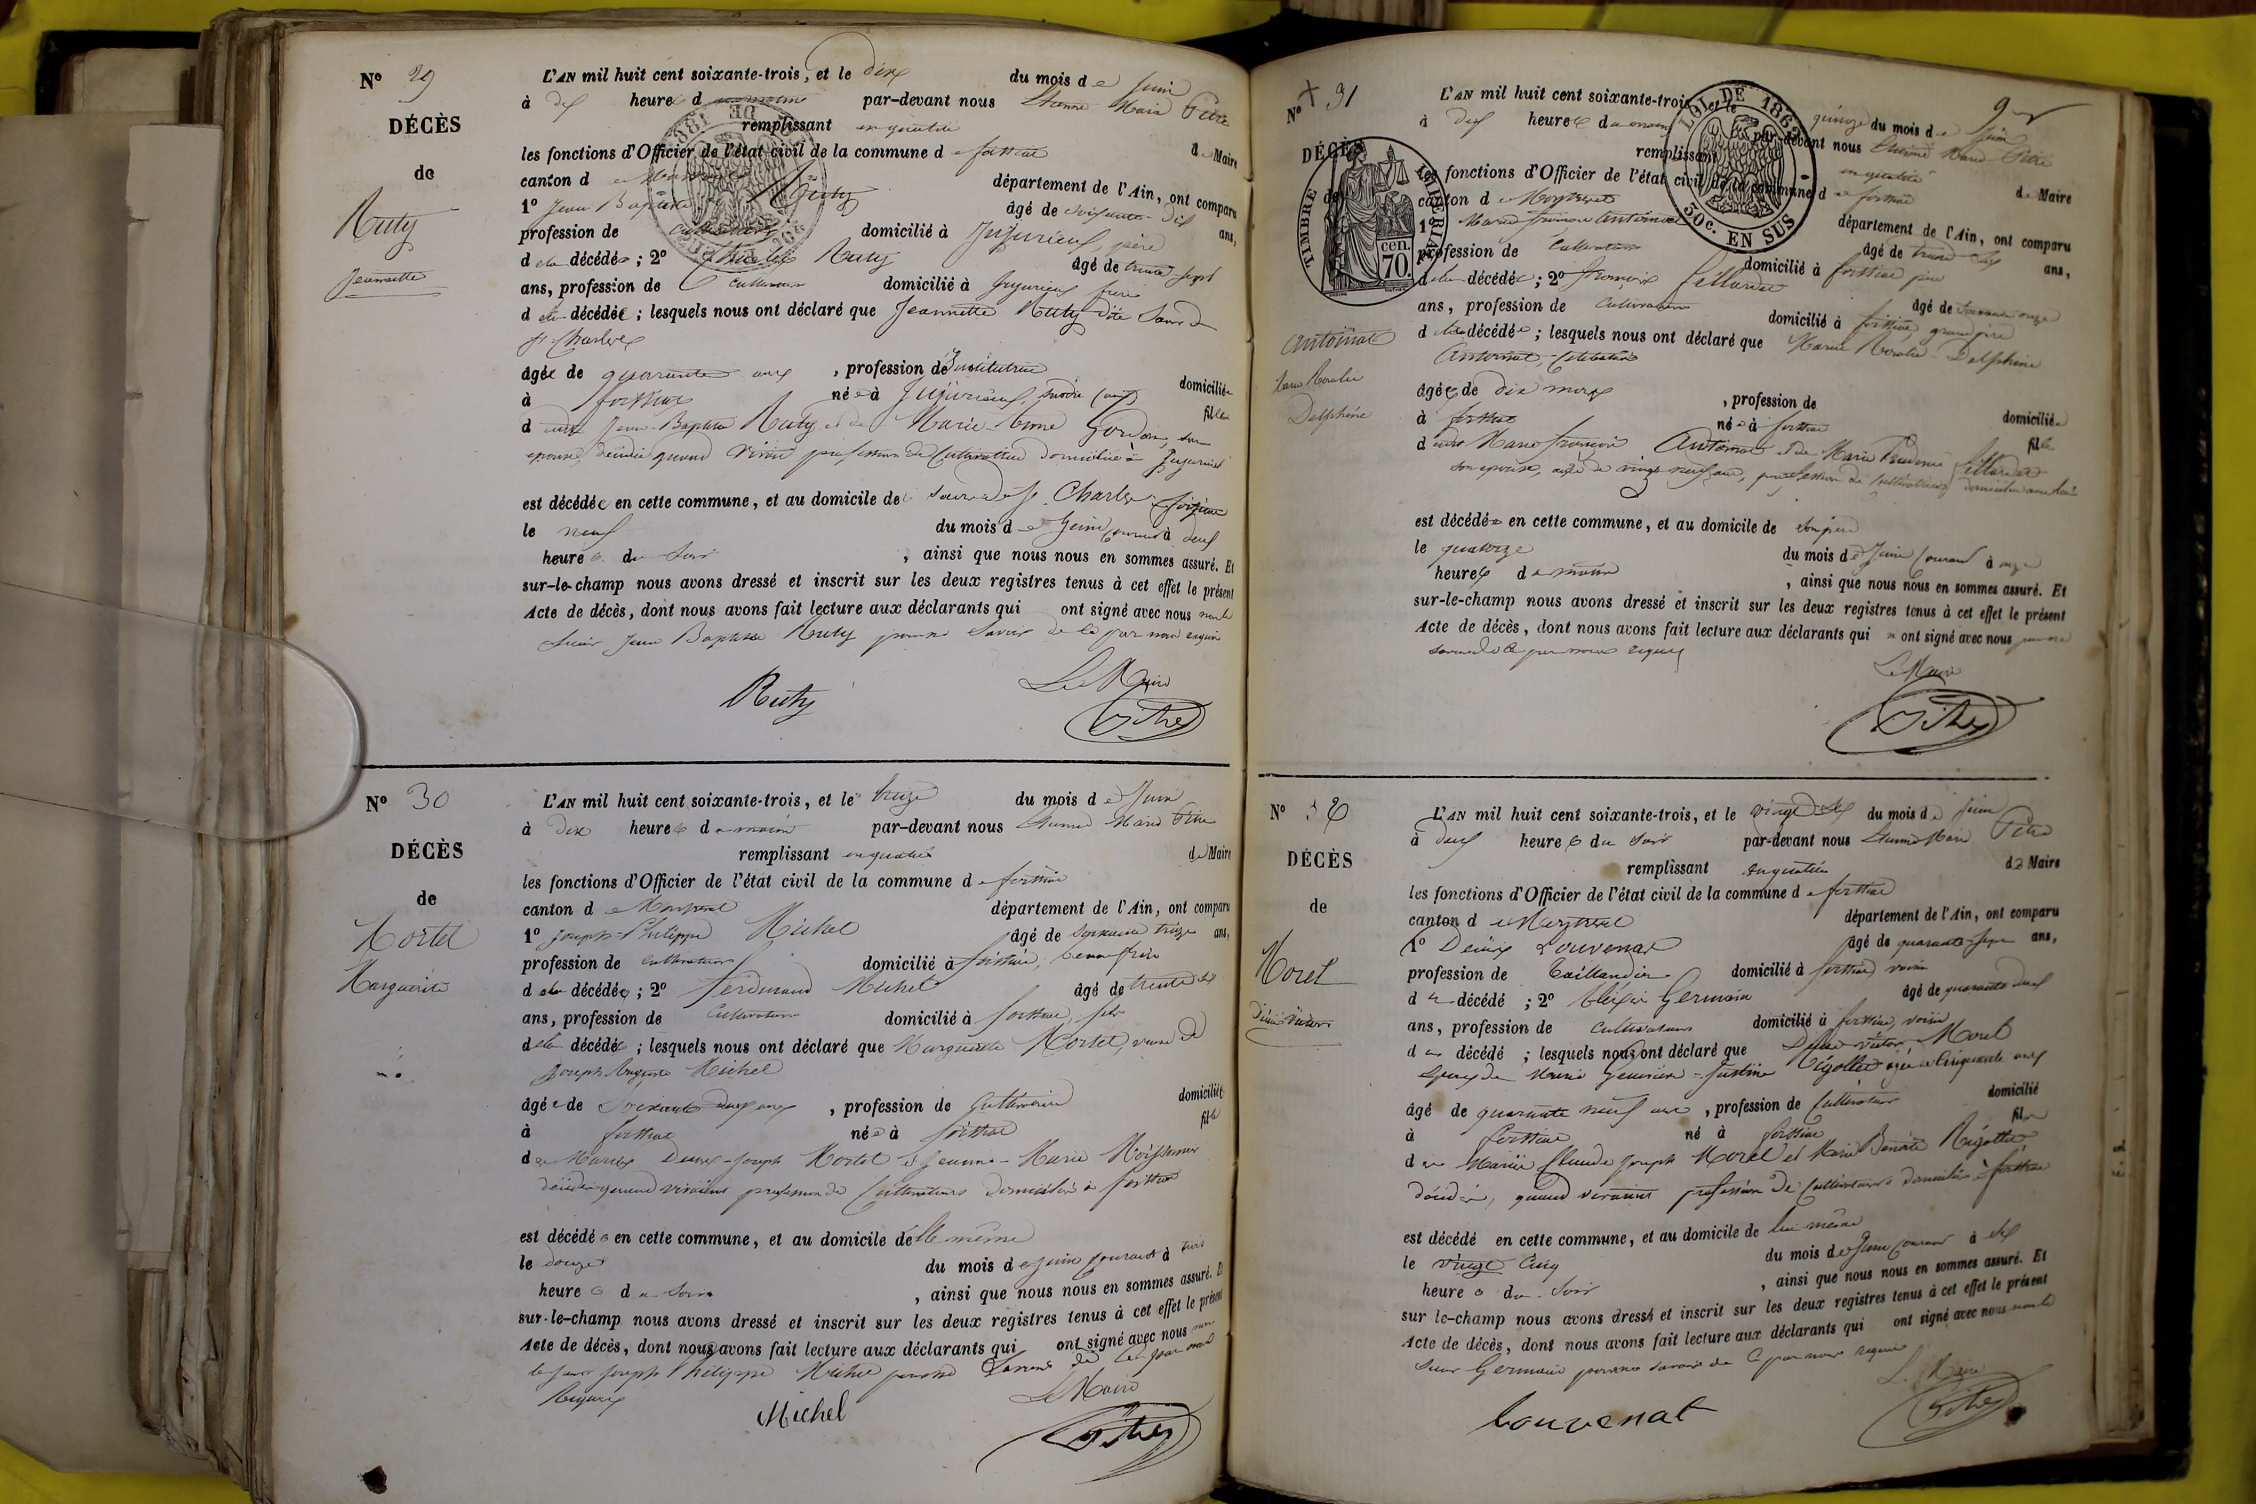 Nº 29
DÉCÈS
de
Ruty
Jeannette
L'AN mil huit cent soixante-trois, et le dix du mois de Juin
à dix heures du matin par-devant nous Etienne Marie Pitre
remplissant en qualité de Maire
les fonctions d'Officier de l'état civil de la commune de
canton d département de l'Ain, ont comparu
1º Jean Baptiste Ruty âgé de soixante-dix ans,
profession de cultivateur domicilié à Jujurieux, père
de la décédée ; 2º Ruty âgé de trente-sept
ans, profession de cultivateur domicilié à Jujurieux frère
de la décédée ; lesquels nous ont déclaré que Jeannette Ruty dite Soeur
St Charles
âgée de quarante ans , profession de Institutrice domiciliée
à née à Jujurieux, fille
d Jean-Baptiste Ruty et de Marie-Anne son
épouse, décédée quand vivait profession de Cultivatrice domiciliée à Jujurieux
est décédée en cette commune, et au domicile de St Charles
le neuf du mois de Juin courant à deux
heures du soir , ainsi que nous nous en sommes assuré. Et
sur-le-champ nous avons dressé et inscrit sur les deux registres tenus à cet effet le présent
Acte de décès, dont nous avons fait lecture aux déclarants qui ont signé avec nous non le
Sieur Jean Baptiste Ruty pour ne savoir de ce par nous requis
Ruty
Le Maire
Pitre
Nº 30
DÉCÈS
de
Mortel
Marguerite
L'AN mil huit cent soixante-trois, et le treize du mois de Juin
à dix heures du matin par-devant nous Etienne Marie Pitre
remplissant en qualité de Maire
les fonctions d'Officier de l'état civil de la commune de
canton de département de l'Ain, ont comparu
1º Joseph-Philippe Michel âgé de soixante treize ans,
profession de cultivateur domicilié à beau frère
de la décédée ; 2º Ferdinand Michel âgé de trente
ans, profession de Cultivateur domicilié à fils
de la décédée ; lesquels nous ont déclaré que Marguerite Mortel, veuve de
Joseph Auguste Michel
âgée de soixante ans , profession de domiciliée
à née à fille
de Mariés Joseph Mortel et Jeanne-Marie
décédés quand vivaient profession de Cultivateurs domiciliés à
est décédée en cette commune, et au domicile de elle même
le douze du mois de Juin courant à
heures du soir , ainsi que nous nous en sommes assuré. Et
sur-le-champ nous avons dressé et inscrit sur les deux registres tenus à cet effet le présent
Acte de décès, dont nous avons fait lecture aux déclarants qui ont signé avec nous non
le sieur Joseph Philippe Michel pour ne savoir de ce par nous
Requis
Michel
Le Maire
Pitre
Nº 31
DÉCÈS
de
TIMBRE IMPERIAL
70 cen.
LOI DE 1862
30c. EN SUS
Antoinat
Marie Rosalie
Delphine
L'AN mil huit cent soixante-trois, et le quinze du mois de Juin
à dix heures du matin par-devant nous Etienne Marie Pitre
remplissant en qualité de Maire
les fonctions d'Officier de l'état civil de la commune de
canton de département de l'Ain, ont comparu
1º Marie François Antoinat âgé de trente ans,
profession de Cultivateur domicilié à père
de la décédée ; 2º François âgé de
ans, profession de Cultivateur domicilié à grand père
de la décédée ; lesquels nous ont déclaré que Marie Rosalie Delphine
Antoinat, Célibataire
âgée de dix mois , profession de domiciliée
à née à fille
de Marie François Antoinat et de Marie
son épouse, âgée de vingt neuf ans, profession de Cultivatrice
est décédée en cette commune, et au domicile de son père
le quatorze du mois de Juin courant à onze
heures du matin , ainsi que nous nous en sommes assuré. Et
sur-le-champ nous avons dressé et inscrit sur les deux registres tenus à cet effet le présent
Acte de décès, dont nous avons fait lecture aux déclarants qui n'ont signé avec nous pour ne
savoir de ce par nous requis
Le Maire
Pitre
Nº 32
DÉCÈS
de
Morel
Victor
L'AN mil huit cent soixante-trois, et le vingt six du mois de Juin
à deux heures du soir par-devant nous Etienne Marie Pitre
remplissant en qualité de Maire
les fonctions d'Officier de l'état civil de la commune de
canton de département de l'Ain, ont comparu
1º Louvenat âgé de quarante-sept ans,
profession de Taillandier domicilié à voisin
du décédé ; 2º Germain âgé de quarante deux
ans, profession de Cultivateur domicilié à voisin
du décédé ; lesquels nous ont déclaré que Victor Morel
époux de Marie Justine âgée de Cinquante ans
âgé de quarante neuf ans , profession de Cultivateur domicilié
à né à fils
de Mariés Claude Joseph Morel et Marie
décédés, quand vivaient profession de Cultivateurs domiciliés à
est décédé en cette commune, et au domicile de lui même
le vingt Cinq du mois de Juin courant à six
heures du soir , ainsi que nous nous en sommes assuré. Et
sur le-champ nous avons dressé et inscrit sur les deux registres tenus à cet effet le présent
Acte de décès, dont nous avons fait lecture aux déclarants qui ont signé avec nous non le
sieur Germain pour ne savoir de ce par nous requis
Louvenat
Le Maire
Pitre